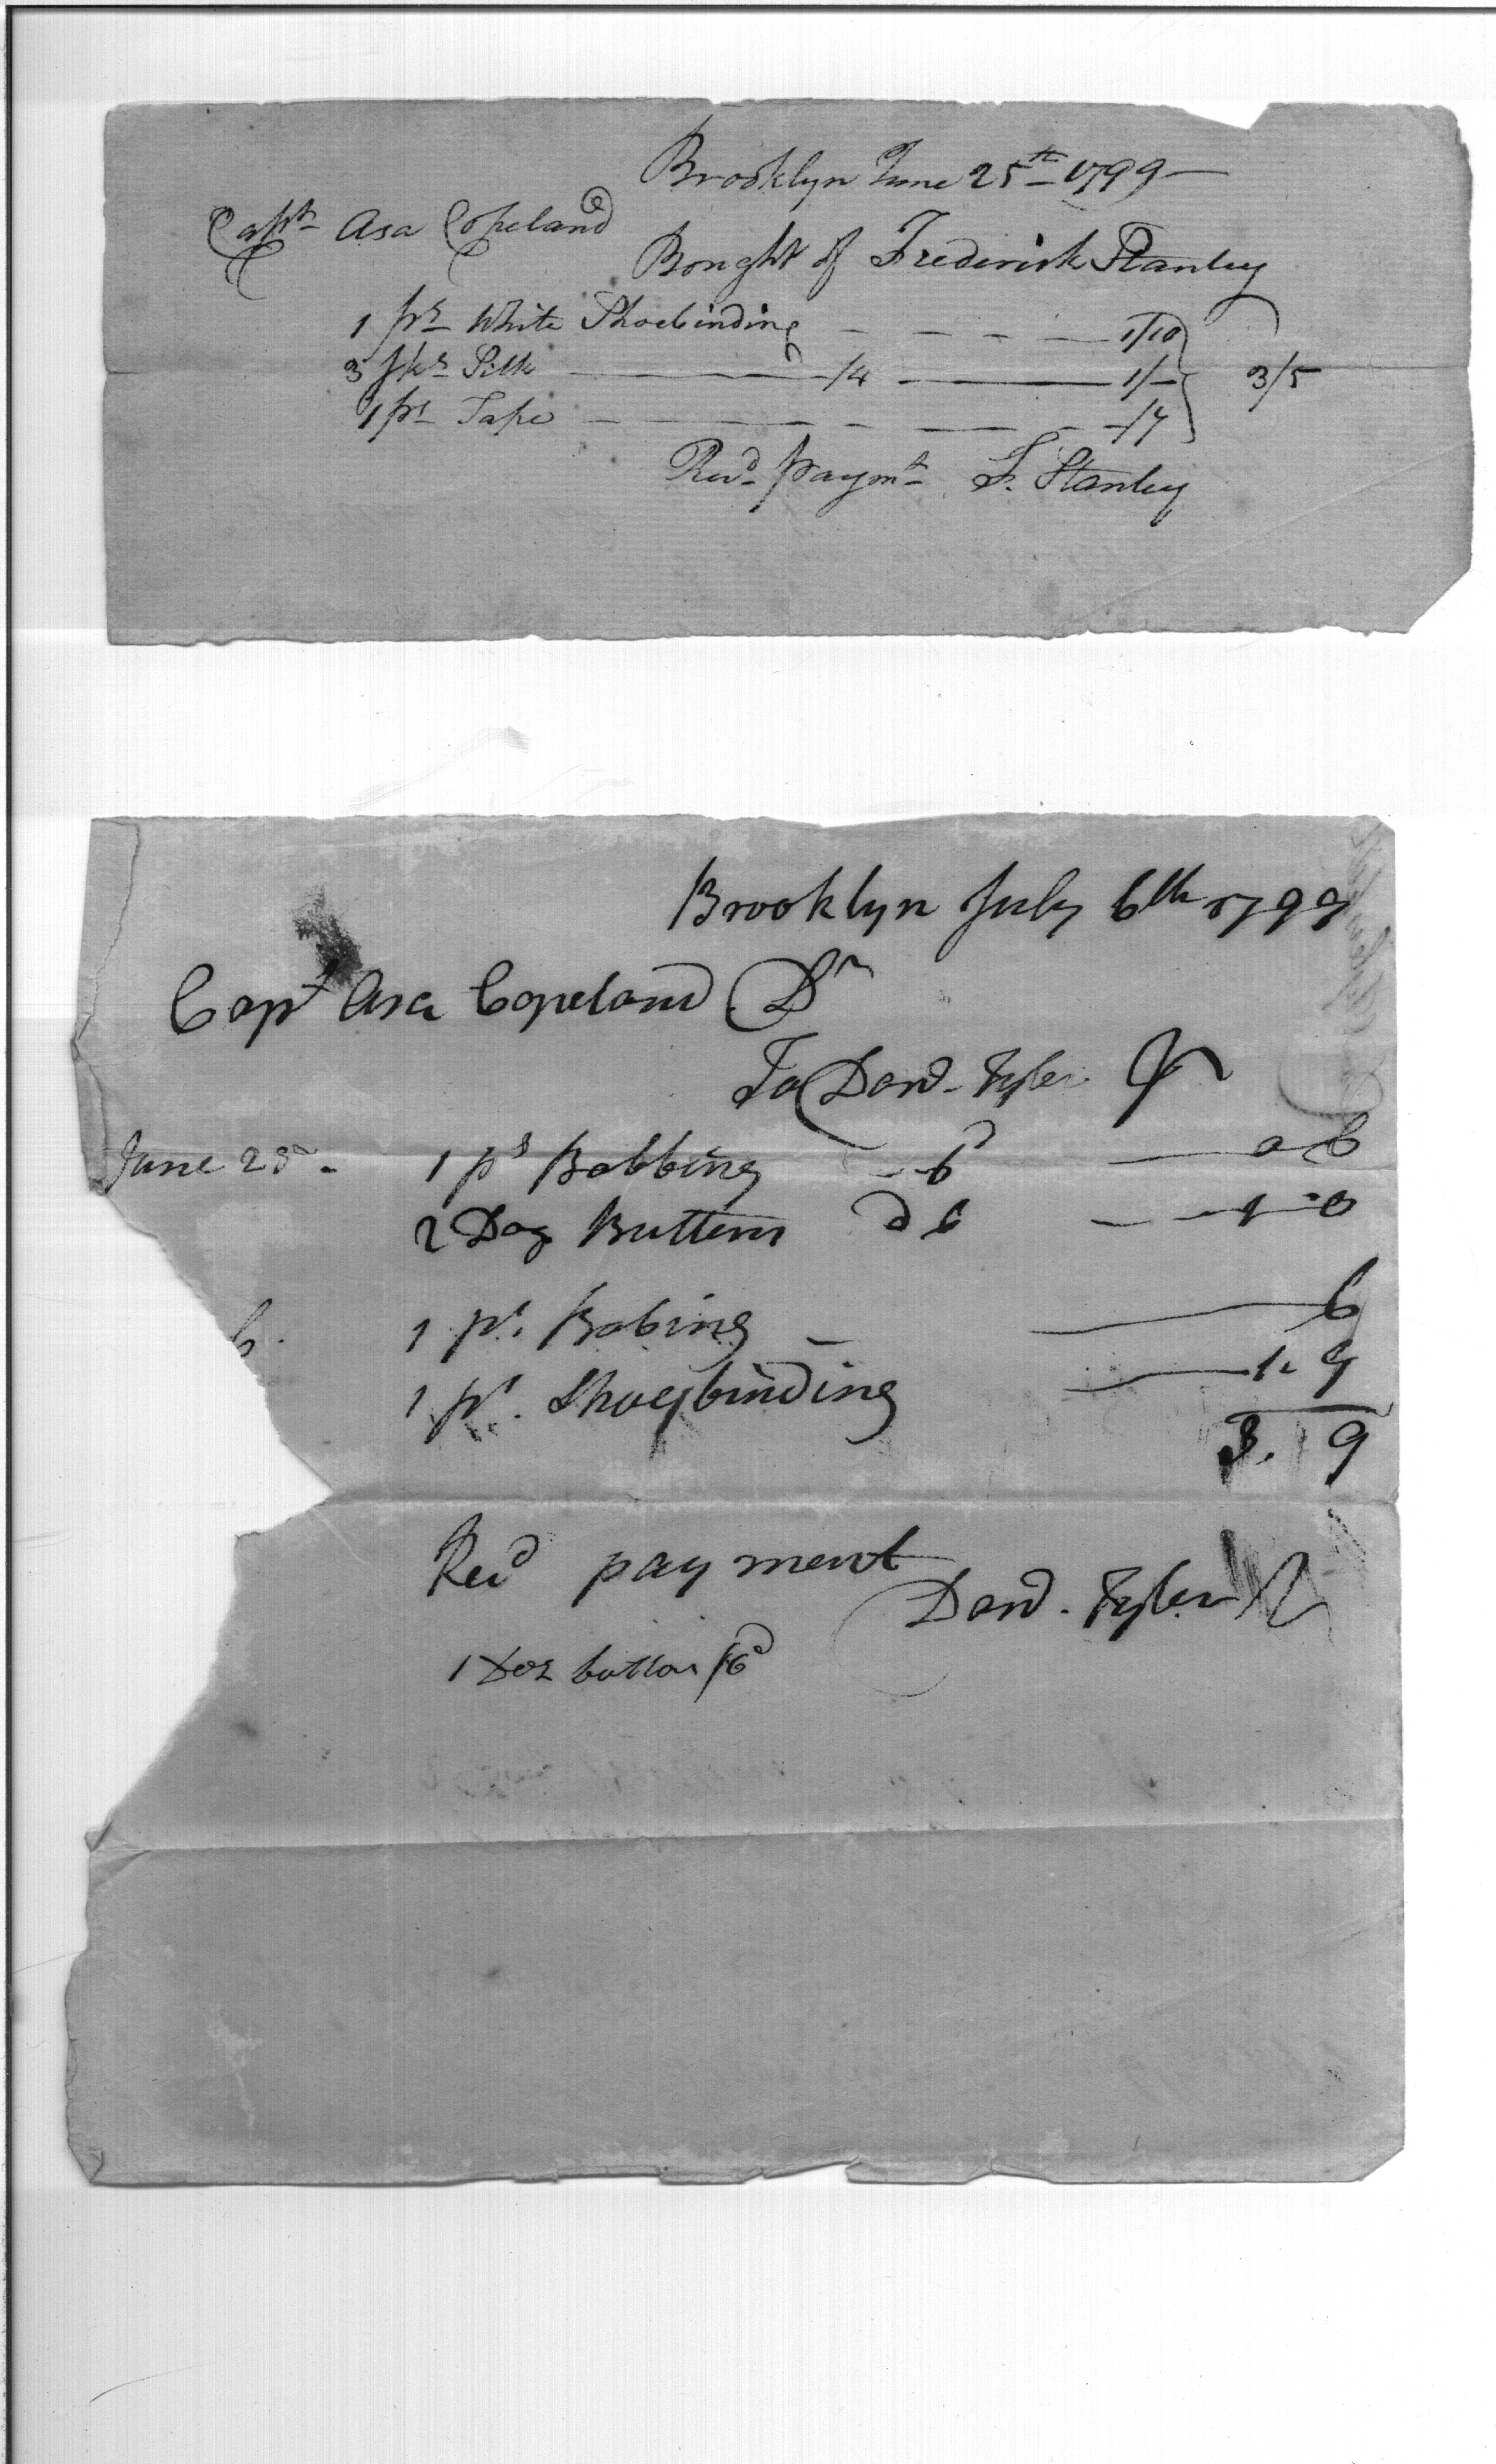 Brooklyn June 25th 1799
Capt Asa Copeland
Bought of Frederick Stanley
1 ps White Shoebinding - - - - 1/10
3 sks Silk /4 1/- 3/5
1 ps Tape - - - - - - /7
Recd paymt F. Stanley
Brooklyn July 6th 1799
Capt Asa Copeland Dr
To Dan'l Tyler Jr
June 25 - 1 ps Bobbing 6d 0 6
2 Doz Buttons d 6 1-0
6. 1 ps. Bobing - 6
1 ps. Shoesbinding 1. 9
3. 9
Recd payment
Danl. Tyler Jr
1 Doz button /6d